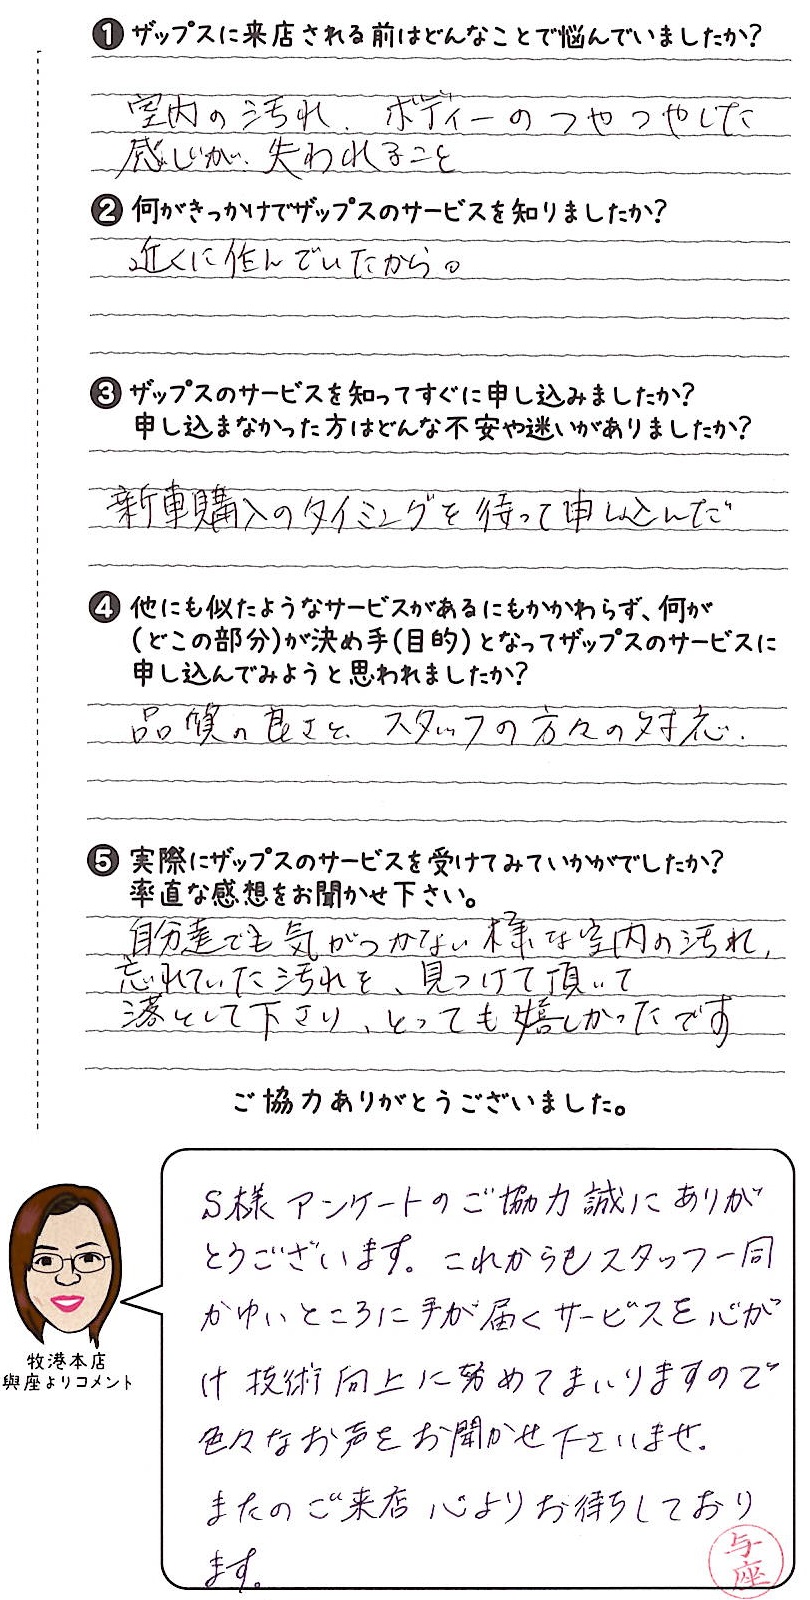 ❶ザップスに来店される前はどんなことで悩んでいましたか?
室内の汚れ、ボディーのつやつやした
感じが、失われること
❷何がきっかけでザップスのサービスを知りましたか?
近くに住んでいたから。
❸ザップスのサービスを知ってすぐに申し込みましたか?
申し込まなかった方はどんな不安や迷いがありましたか?
新車購入のタイミングを待って申し込んだ
❹他にも似たようなサービスがあるにもかかわらず、何が
(どこの部分)が決め手(目的)となってザップスのサービスに
申し込んでみようと思われましたか?
品質の良さと、スタッフの方々の対応.
❺実際にザップスのサービスを受けてみていかがでしたか?
率直な感想をお聞かせ下さい。
自分達でも気がつかない様な室内の汚れ,
忘れていた汚れを、見つけて頂いて
落として下さり、とっても嬉しかったです
ご協力ありがとうございました。
S様 アンケートのご協力誠にありが
とうございます。これからもスタッフ一同
かゆいところに手が届くサービスを心が
け技術向上に努めてまいりますので
色々なお声をお聞かせ下さいませ.
またのご来店 心よりお待ちしており
ます。
牧港本店
與座よりコメント
与座